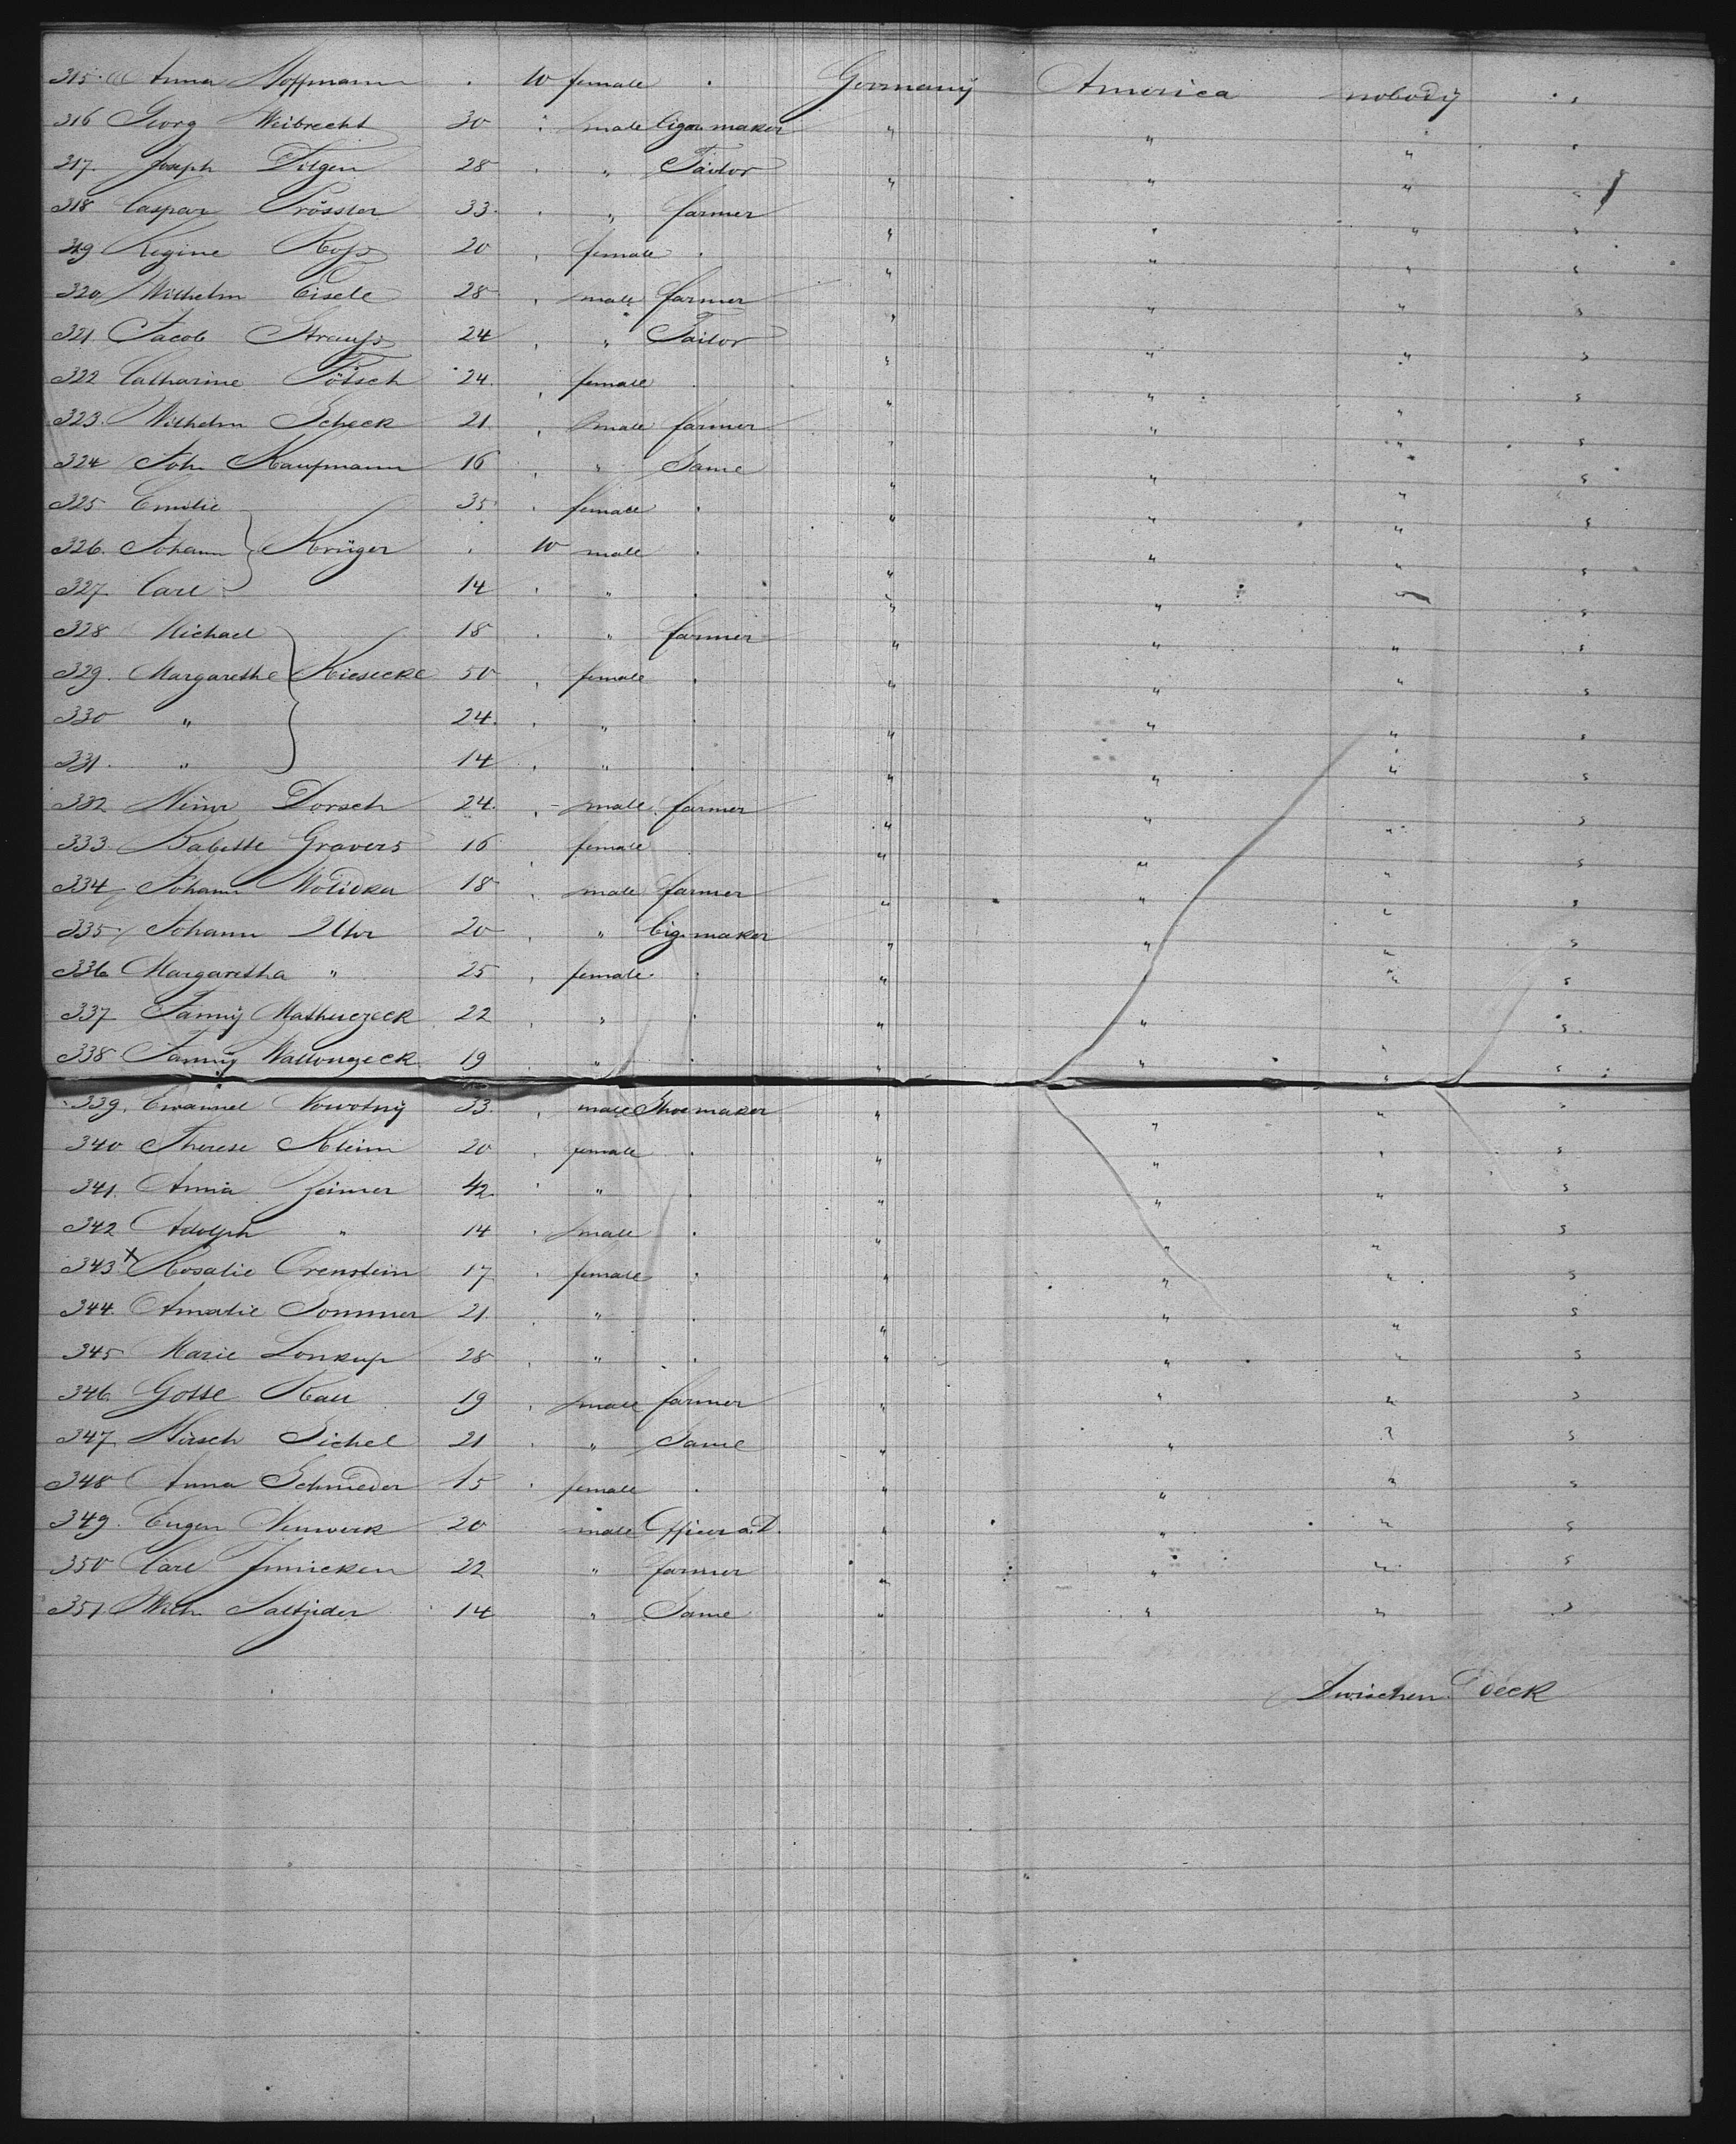 315. Anna Hoffmann . 10 female . Germany America nobody
316 Georg Weibrecht 30 male Cigarmaker " " " s
217. Joseph Dilgen 28 " Tailor " " " s
318 Caspar Prössler 33. " farmer " " " s
319 Regine Roß 20 female " " " s
320 Wilhelm Eisele 28 male farmer " " " s
321 Jacob Strauß 24 " Tailor " " " s
322 Catharine Pötsch 24. female " " " s
323. Wilhelm Scheck 21. male farmer " " " s
324 Joh. Kaufmann 16 " Same " " " s
325 Emilie 35 female " " " s
326. Johann Krüger . 10 male " " " s
327. Carl 14 " " " " s
328 Michael 18 " farmer " " " s
329. Margarethe Kiesecke 50 female " " " s
330 " 24. " " " " s
331. " 14 " " " " s
332 Heinr Dorsch 24. male farmer " " " s
333 Babette Gravers 16 female " " " s
334 Johann Wotidka 18 male farmer " " " s
335 Johann Uhr 20 " Cig. maker " " " s
336 Margaretha " 25 female " " " s
337 Fanny Mathuczeck 22 " " " s
338 Fanny 19 " " " " s
339. Emanuel Nowotny 33. male Shoemaker " " " s
340 Therese Kleim 20 female " " " s
341. Anna Zeimer 42 " " " " s
342 Adolph " 14 male " " " s
343 x Rosalie Orenstein 17 female " " " s
344. Amalie Sommer 21. " " " " s
345 Marie Lonkup 28 " " " " s
346 Gotte Rau 19 male farmer " " " s
347 Hirsch Sichel 21 " Same " " " s
348 Anna Schnieder 15 female " " " s
349. Eugen Neuwerk 20 male Officer a. D. " " " s
350 Carl Jmicken 22 " farmer " " " s
351 Wilh. Saltzider 14 " Same " " " s
Zwischen Deck